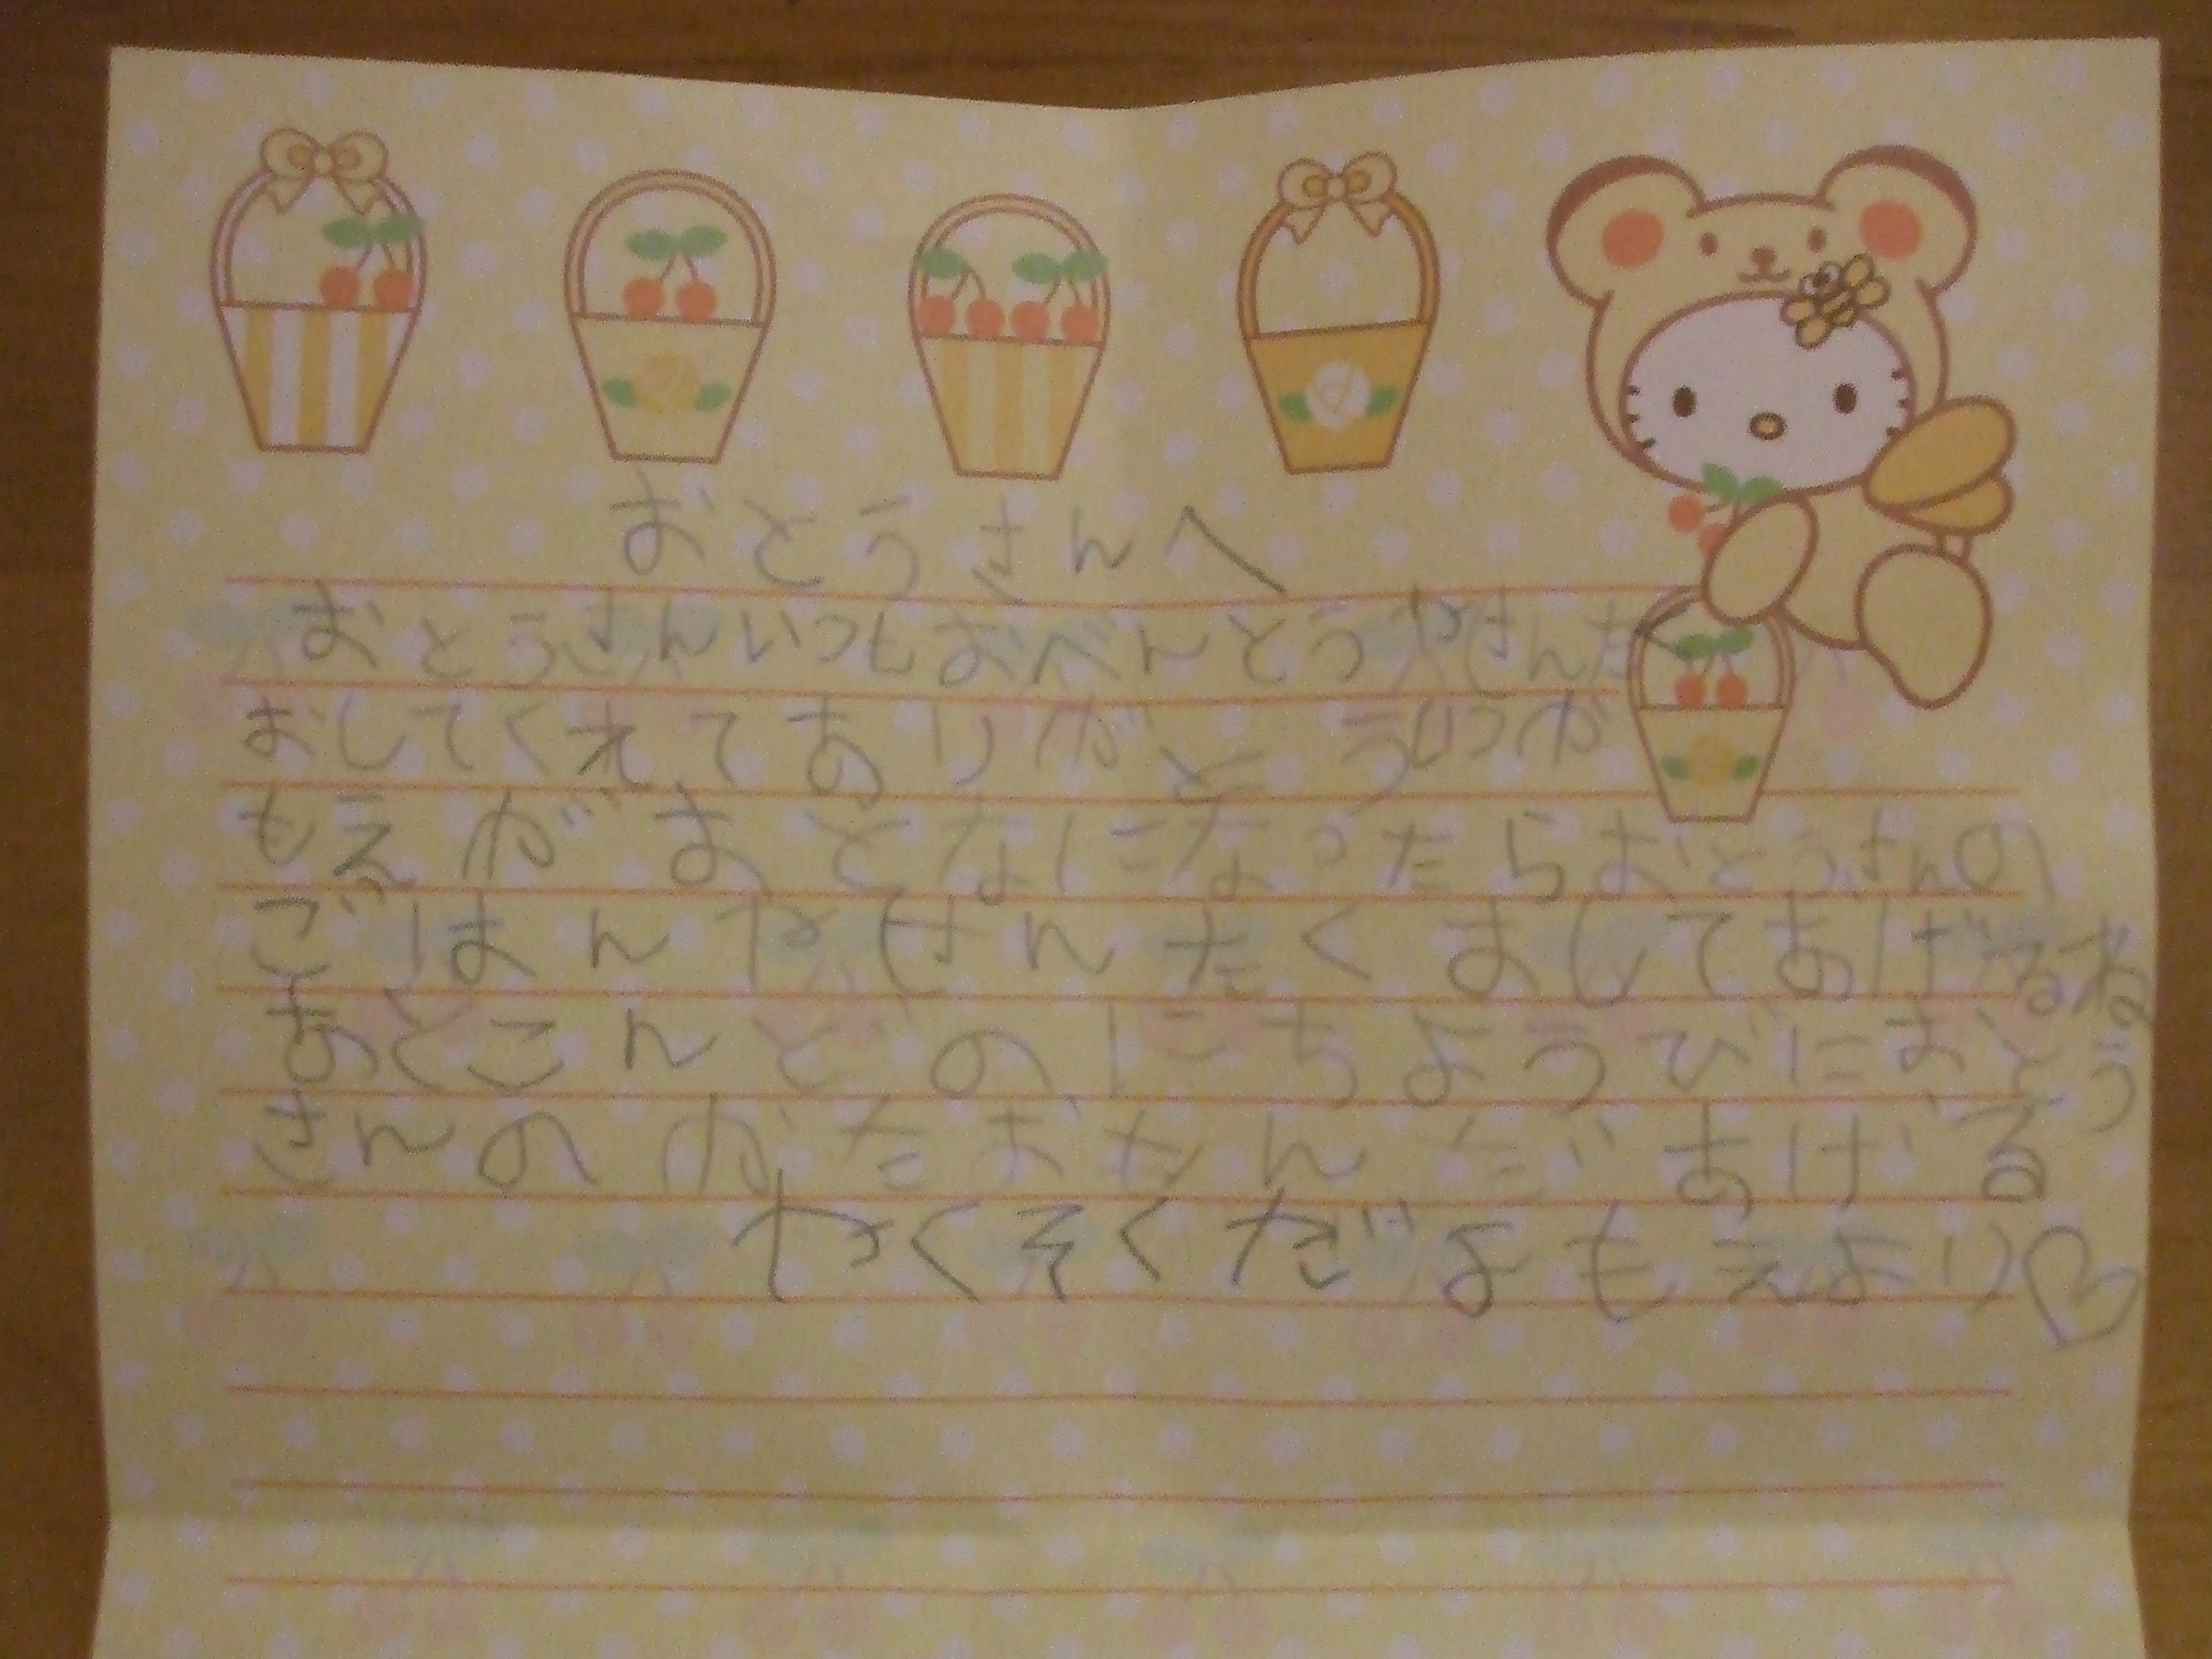 おとうさんへ
おとうさんいつもおべんとうやせんたく
おしてくれてありがとういつか
もえがおとなになったらおとうさんの
ごはんやせんたくおしてあげるね
あとこんどのにちようびにおとう
さんのかたおもんであげる
やくそくだよもえより♡